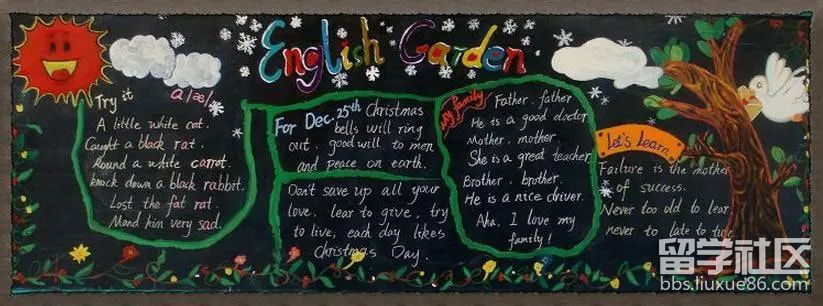 English Garden
Try it
a/æ/
A little white cat.
Caught a black rat.
Round a white carrot.
knock down a black rabbit.
Lost the fat rat.
Mand him very sad.
For Dec. 25th Christmas
bells will ring
out. good will to men
and peace on earth.
Don't save up all your
love, lear to give, try
to live, each day likes
Christmas Day.
My family
Father. father
He is a good doctor
Mother. mother.
She is a great teacher
Brother. brother.
He is a nice driver.
Aha. I love my
family!
Let's Learn
Failure is the mother
of success.
Never too old to lear
never to late to
留学社区
bbs.liuxue86.com